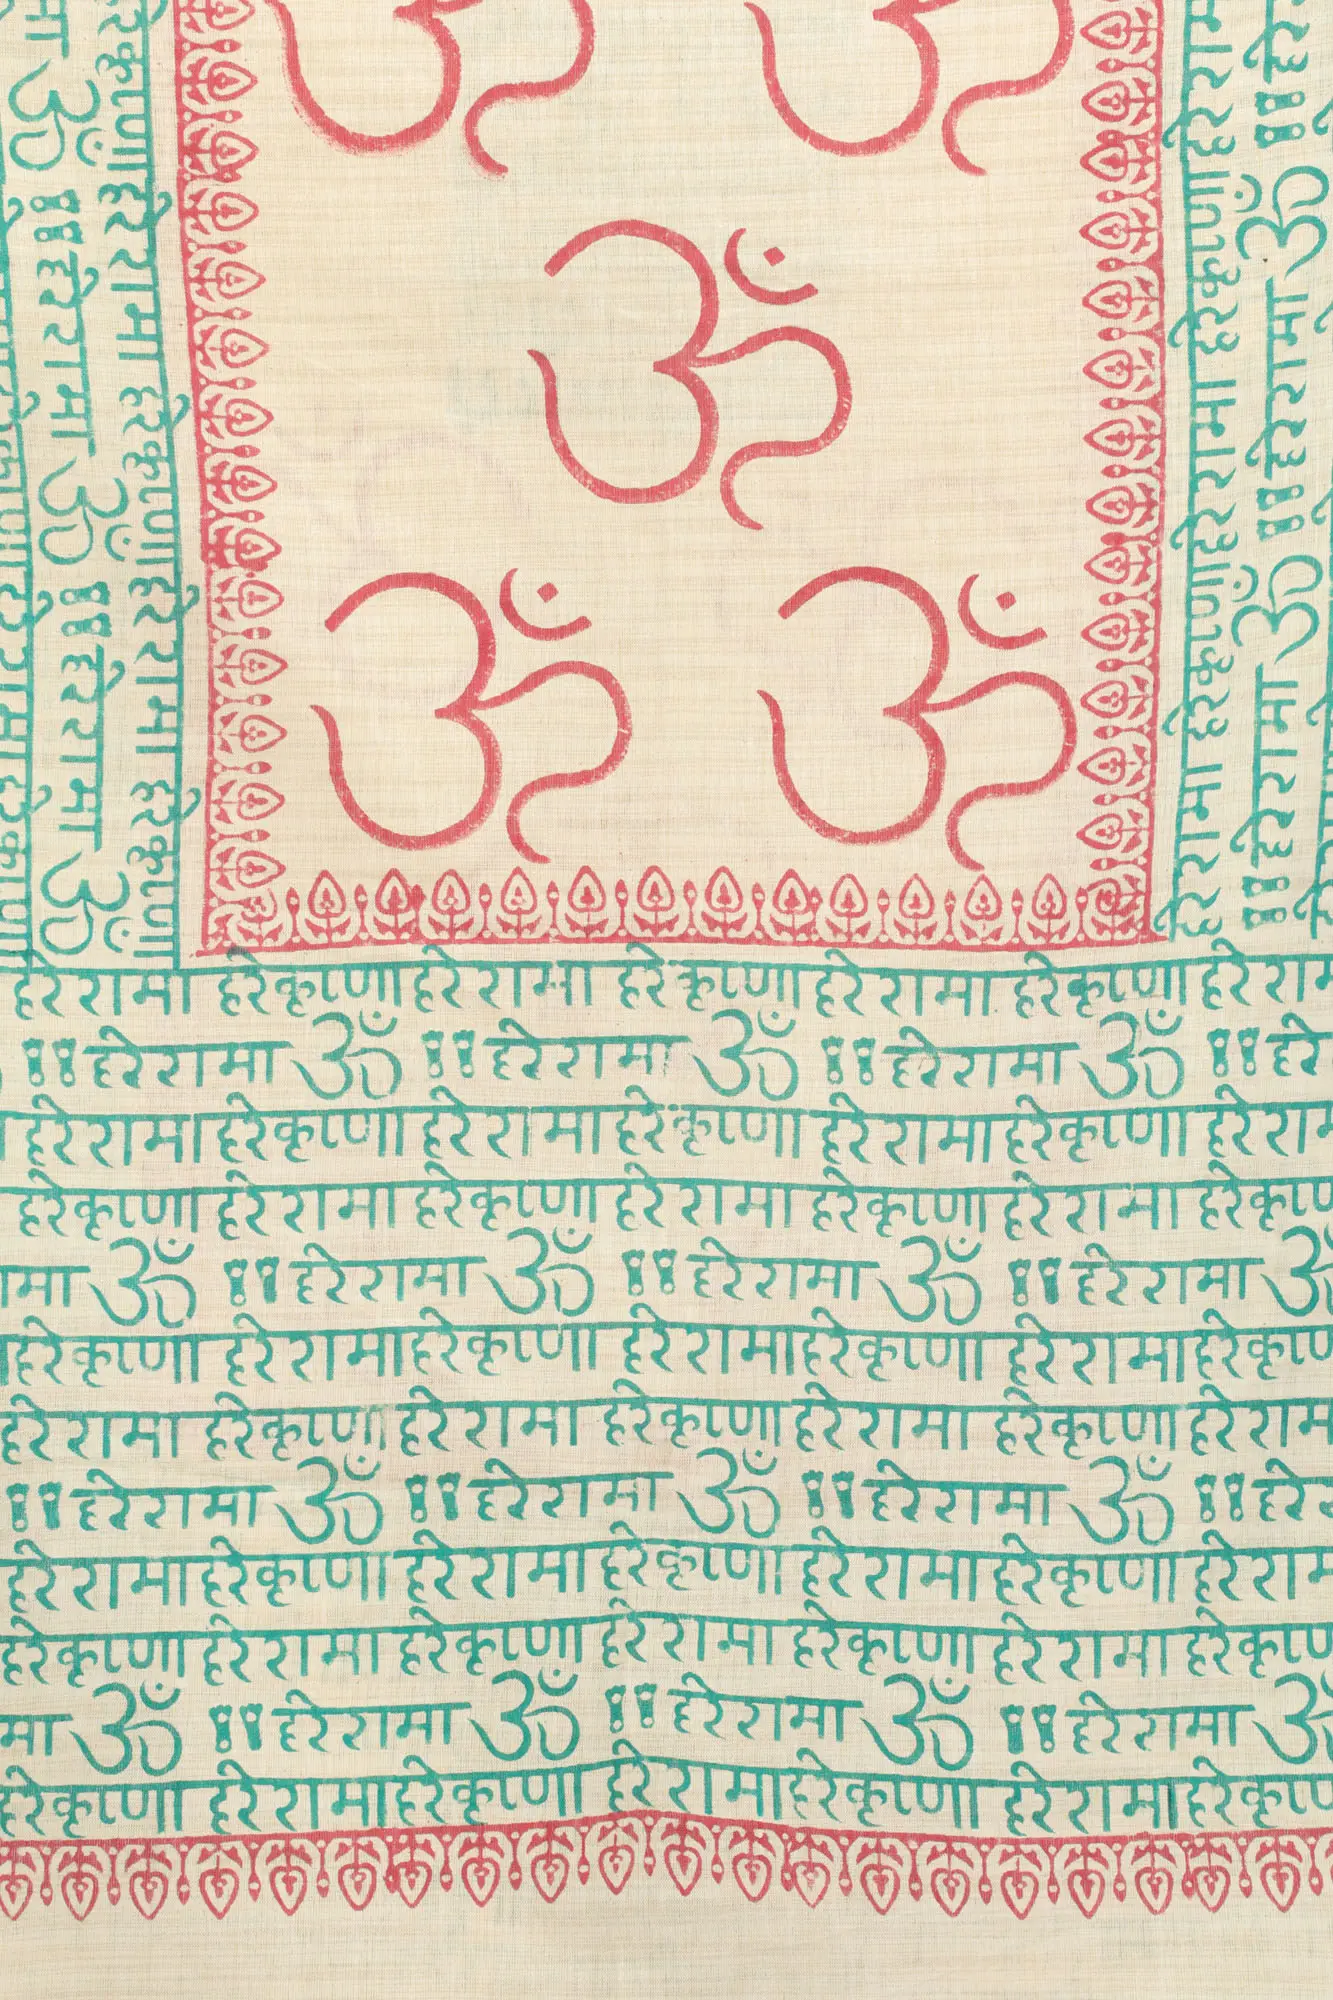 ॐ ॐ
ॐ
ॐ ॐ
हरे रामा हरे कृष्णा हरे रामा हरे कृष्णा हरे रामा हरे कृष्णा हरे राम
हरे रामा ॐ हरे रामा ॐ हरे रामा ॐ हरे
हरे रामा हरे कृष्णा हरे रामा हरे कृष्णा हरे रामा हरे कृष्णा हरे राम
हरे कृष्णा हरे रामा हरे कृष्णा हरे रामा हरे कृष्णा हरे रामा हरे कृष्ण
मा ॐ हरे रामा ॐ हरे रामा ॐ हरे रामा ॐ
हरे कृष्णा हरे रामा हरे कृष्णा हरे रामा हरे कृष्णा हरे रामा हरे कृष्ण
हरे रामा हरे कृष्णा हरे रामा हरे कृष्णा हरे रामा हरे कृष्णा हरे राम
हरे रामा ॐ हरे रामा ॐ हरे रामा ॐ हरे
हरे रामा हरे कृष्णा हरे रामा हरे कृष्णा हरे रामा हरे कृष्णा हरे राम
हरे कृष्णा हरे रामा हरे कृष्णा हरे रामा हरे कृष्णा हरे रामा हरे कृष्ण
मा ॐ हरे रामा ॐ हरे रामा ॐ हरे रामा ॐ
हरे कृष्णा हरे रामा हरे कृष्णा हरे रामा हरे कृष्णा हरे रामा हरे कृष्ण
हरे कृष्णा हरे रामा हरे कृष्णा हरे रामा हरे कृष्णा
मा ॐ हरे रामा ॐ हरे रामा ॐ
हरे रामा हरे कृष्णा हरे रामा हरे कृष्णा हरे राम
हरे रामा ॐ हरे रामा ॐ हरे